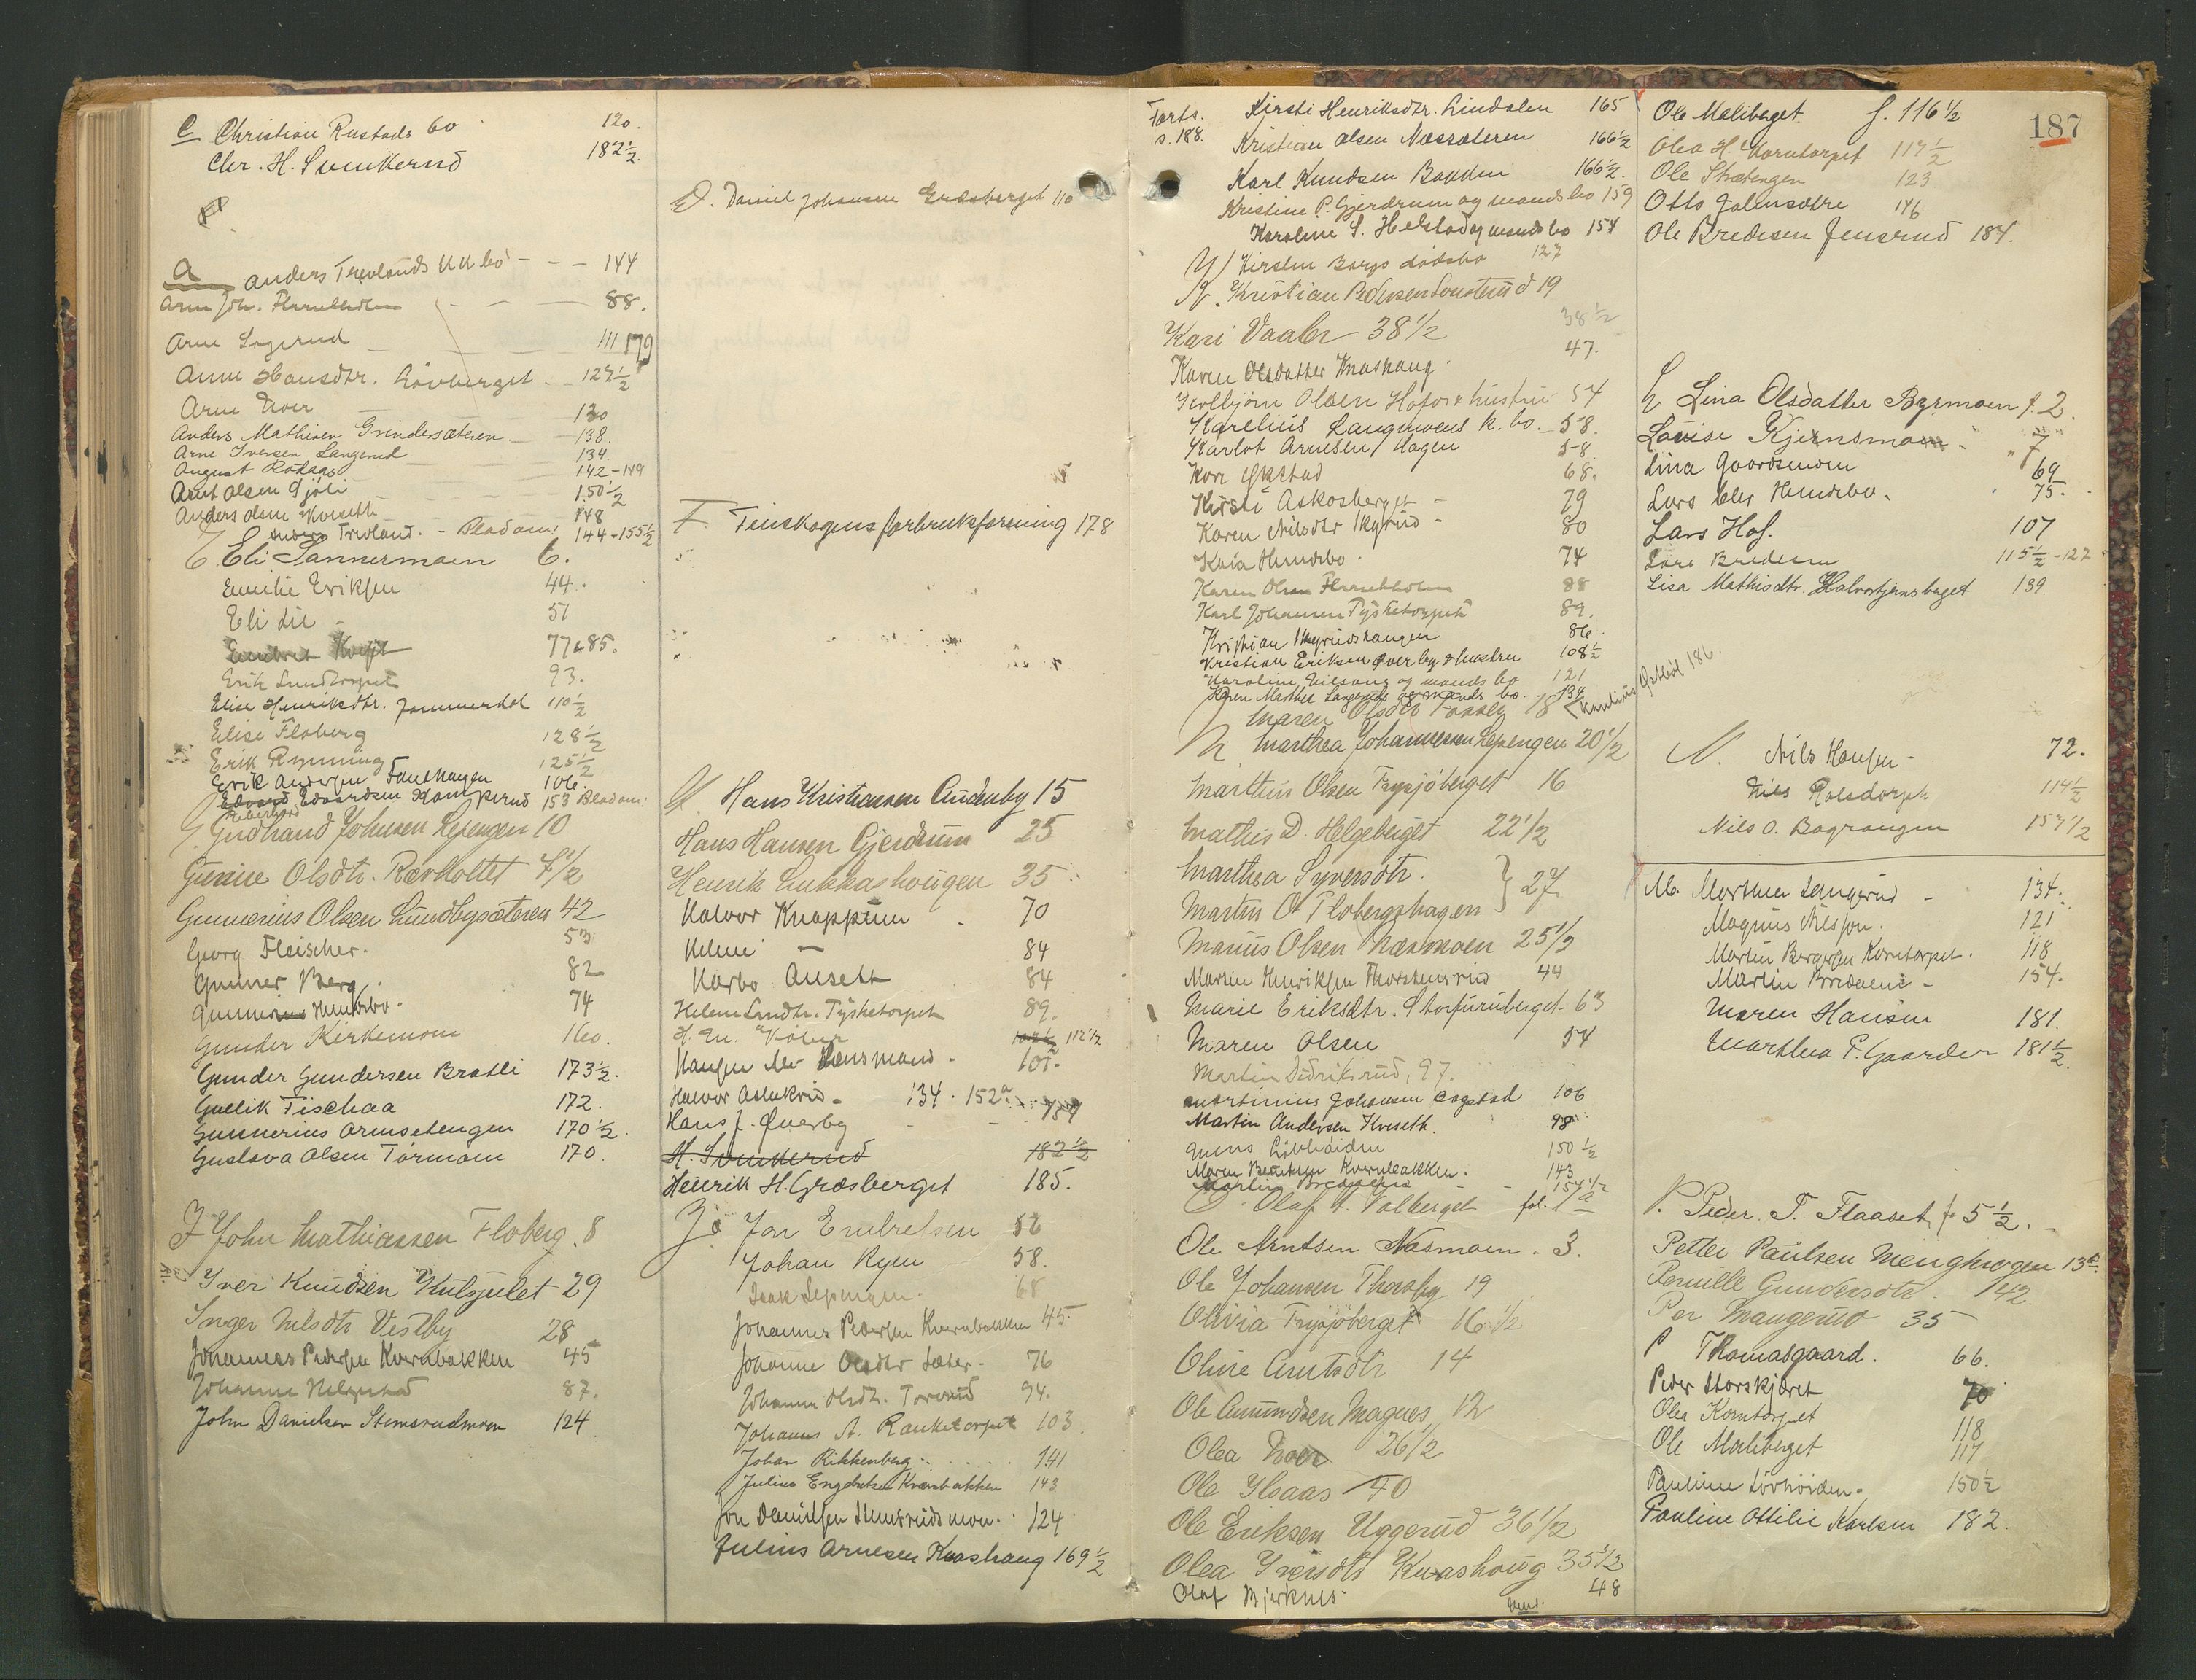 C Christian Rustads bo 120.
Chr. H. Svenkerud 182½.
A Anders Trevlands KK bo - - - 144
Arne Joh. 88.
Arne Segerud 111 179
Anne Hansdtr. Lövberget 127½
Arne Noer 130
Anders Mathisen Grindersæteren - 138.
Arne Iversen Langerud 134.
August Rodaas 142-149
Arnt Olsen Gjöli 150½
Anders Olsen Kveseth 148
Anders Trevland. - 144-155½
E. Eli Sannermoen 6.
Emilie Eriksen 44.
Eli Lie 51
77 & 85.
Erik Lundtorpet 93.
Elise Henriksdtr. Jammerdal 110½
Elise Floberg 128½
Erik Rynning 125½
Erik Andersen 106.
Edvard Edvardsen 153
G. Gudbrand Johnsen Lepengen 10
Gunine Olsdtr. Rævholtet 4½
Gunnerius Olsen Lundbysæteren 42
Georg Fleischer. 53
Gunner Berg. 82
Gunnerius Hundbo. 74
Gunder Kirkemoen 160.
Gunder Gundersen Bratli 173½.
Gullik Fischaa 172.
Gunnerius Arnsetengen 170½.
Gustava Olsen Törmoen 170.
I John Mathiassen Floberg. 8
Iver Knudsen Kulsjulet 29
Inger Nilsdtr Vestby 28
Johannes Pedersen Kvernbakken 45
Johanne Helgestad 87.
John Danielsen Stemsrudmoen 124
D. Daniel Johansen Græsberget 110
F. Finskogens forbruksforening 178
H. Hans Kristiansen Audenby 15
Hans Hansen Gjerdrum 25
Henrik Lukkashougen 35
Halvor Knappum - 70
Helene — 84
Harbo Ansett 84
Helene Tysketorpet 89.
H. M. 112½
Hansen Lensmand - 107.
Halvor Aslakrud - 134. 152
Hans J. Överby - -
H. Svenkerud 182½
Henrik H. Græsberget 185.
Jo Jon Embretsen 52
Johan Ryen 58.
Isak Lepengen. 68
Johannes Pedersen Kvernbakken 45.
Johanne Olsdtr Sæter. 76
Johanne Olsdtr. Torerud 94.
Johannes A. Ranketorpet 103
Johan Rikkenberg 141
Julius Engebretsen Kvernbakken 143
Jon Danielsen Stemsrudsmoen. 124
Julius Arnesen Knashaug 169½.
Forts. s. 188. Kirsti Henriksdtr. Lindalen 165
Kristian Olsen Næssæteren 166½
Karl Knudsen Bakken 166½.
Kristine P. Gjerdrum og mands bo 159
Karoline S. Helstad og mands bo 154
Kirsten Bergs dödsbo 127
K. Kristian Pedersen 19
Kari Vaaler 38½ 38½
Karen Olsdatter Knashaug. 47.
Kolbjörn Olsen Hofos & hustru 54
Karelius Langmoens k. bo. - 58.
Karlot Arnesen Hagen 58
Kari Ökstad 68.
Kirsti Askosberget - 79
Karen Nilsdtr Skyrud - 80
Kaia Hundbo. 74
Karen Olsen 88
Karl Johansen Tysketorpet 89.
Kristian Skyrudshaugen 86.
Kristian Eriksen Överby & hustru 108½
Karoline Nilsens og mands bo 121
Karen Marthea Langeruds og mands bo. - 134
Karelius Östböl 186.
Maren Olsdtr Fossen 18
M. Marthea Johannessen Lepengen 20½
Marthius Olsen Frysjöberget 16
Mathis D. Helgeberget 22½
Marthea Syversdtr. } 27.
Martin O. Flobergshagen
Marius Olsen Næsmoen 25½
Martin Henriksen Thorstensrud 44
Marie Eriksdtr. Storfuruberget. 63
Maren Olsen 54
Martin Didriksrud, 97.
Martinius Johansen Bogstad 106
Martin Andersen Kveseth. 98
Mons Lövhöiden 150½
Maren Bentsen Kvernbakken. 143
Martin Bredesen - - 154½
O. Olaf A. Valberget fol. 1a
Ole Arntsen Næsmoen. 3.
Ole Johansen Thorsby 19
Olivia Frysjöberget 16½
Oline Arntsdtr 14
Ole Amundsen Magnes 12
Olea Noer 26½
Ole Haas 40
Ole Eriksen Uggerud 36½
Olea Iversdtr Knashoug 35½
Olaf Bjerknes. 48
Vend.
187
Ole Maliberget f. 116½
Olea H. Korntorpet 117½
Ole Strætengen 123
Otto Galmsætre 146
Ole Bredesen Jensrud 184.
L Lina Olsdatter Bermoen f. 2.
Lovise Kjernsmoen - " 7
Lina Gaardsmoen 69
Lars Hundbo. 75.
Lars Hof. 107
Lars Bredesen 115½-127
Lisa Mathisdtr. Halvortjernsberget 139
N. Nils Hansen - 72.
Nils Rolsdorph 114½
Nils O. Bagrongen 157½
M. Marthea Langerud - 134.
Magnus Nilsson. 121
Martin Bergersen Korntorpet. 118
Martin Bredesen - 154.
Maren Hansen 181.
Marthea P. Gaarder 181½.
P. Peder T. Flaaset, f. 5½. -
Petter Paulsen Mengkrogen 13
Pernille Gundersdtr. 142.
Per Mangerud 35
P Thomasgaard. 66.
Peder Storskjæret 70
Olea Korntorpet 118
Ole Maliberget 117
Pauline Lövhöiden. 150½
Pauline Ottilie Karlsen 182.